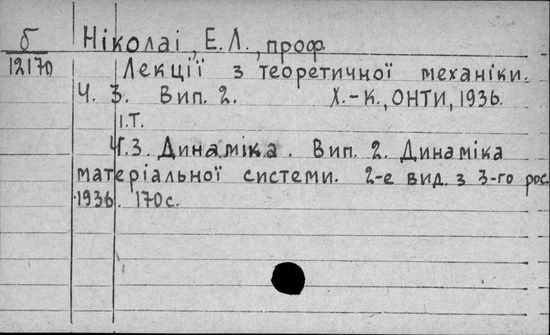 б
12170
Ніколаі, Е.Л., проф.
Лекції з теоретичної механіки.
Ч. 3. Вип. 2. Х.-К., ОНТИ, 1936.
І.Т.
Ч.3 Динаміка. Вип. 2. Динаміка
матеріальної системи. 2-е вид. з 3-го рос.
1936. 170с.